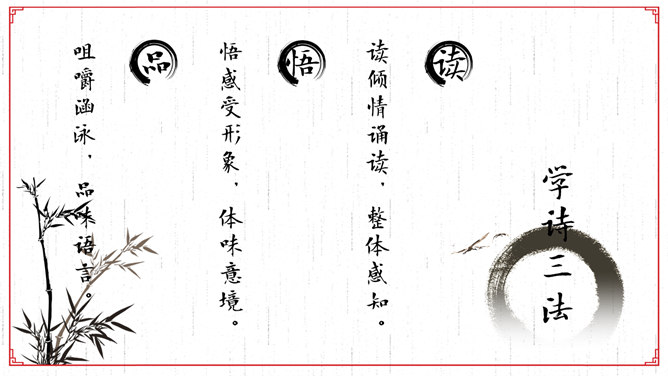 学诗三法
读
读倾情诵读，整体感知。
悟
悟感受形象，体味意境。
品
咀嚼涵泳，品味语言。